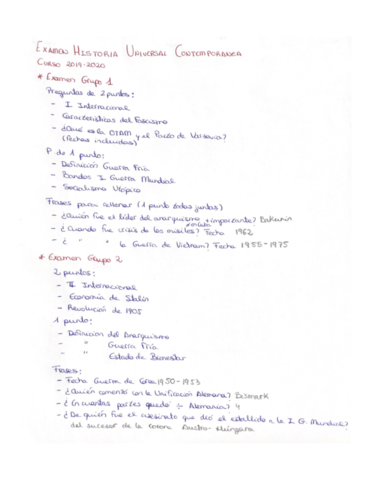 EXAMEN HISTORIA UNIVERSAL CONTEMPORANEA
CURSO 2019-2020
* Examen Grupo 1
Preguntas de 2 puntos:
- I Internacional
- Características del Fascismo
- ¿Qué es la OTAN y el Pacto de Varsovia?
(fechas incluidas)
P. de 1 punto:
- Definición Guerra Fría
- Bandos I Guerra Mundial
- Socialismo Utópico
Frases para rellenar (1 punto todas juntas)
- ¿Quién fue el líder del anarquismo + importante? Bakunin
- ¿Cuando fue crisis de los misiles? Fecha 1962
- ¿ " " la Guerra de Vietnam? Fecha 1955-1975
* Examen Grupo 2
2 puntos:
- II Internacional
- Economía de Stalin
- Revolución de 1905
1 punto:
- Definicion del Anarquismo
- " Guerra Fría
- " Estado de Bienestar
Frases:
- Fecha Guerra de Corea 1950-1953
- ¿Quién comenzó con la Unificación Alemana? Bismark
- ¿En cuantas partes quedó Alemania? 4
- ¿De quién fue el asesinato que dio el estallido a la I. G. Mundial?
del sucesor de la corona Austro-Húngara